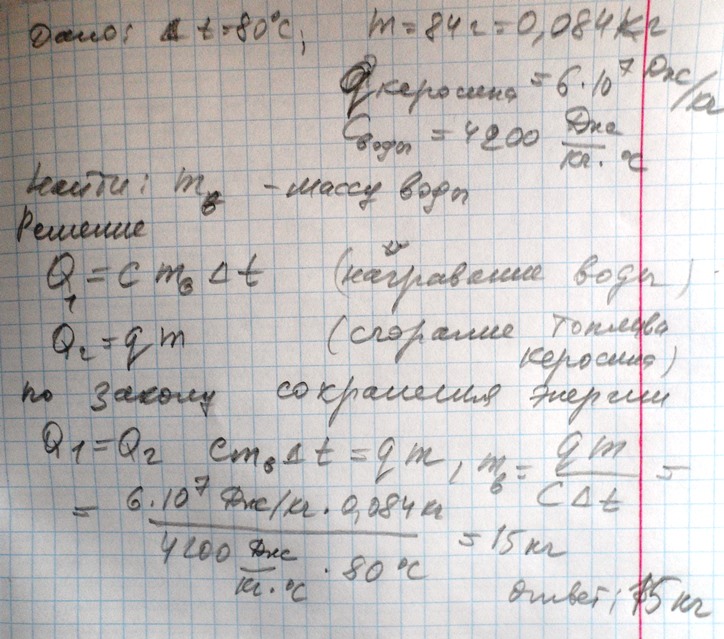 Дано: Δt=80°C, m=84г=0,084кг
qкеросина=6·10⁷ Дж/кг
Cводы=4200 Дж/кг·°C
Найти: mв - массу воды
Решение
Q₁=C mв Δt (нагревание воды)
Q₂=qm (сгорание топлива
керосина)
по закону сохранения энергии
Q₁=Q₂ Cmв Δt=qm, mв=qm/CΔt=
=6·10⁷ Дж/кг·0,084кг/4200 Дж/кг·°C·80°C=15кг
Ответ: 15кг